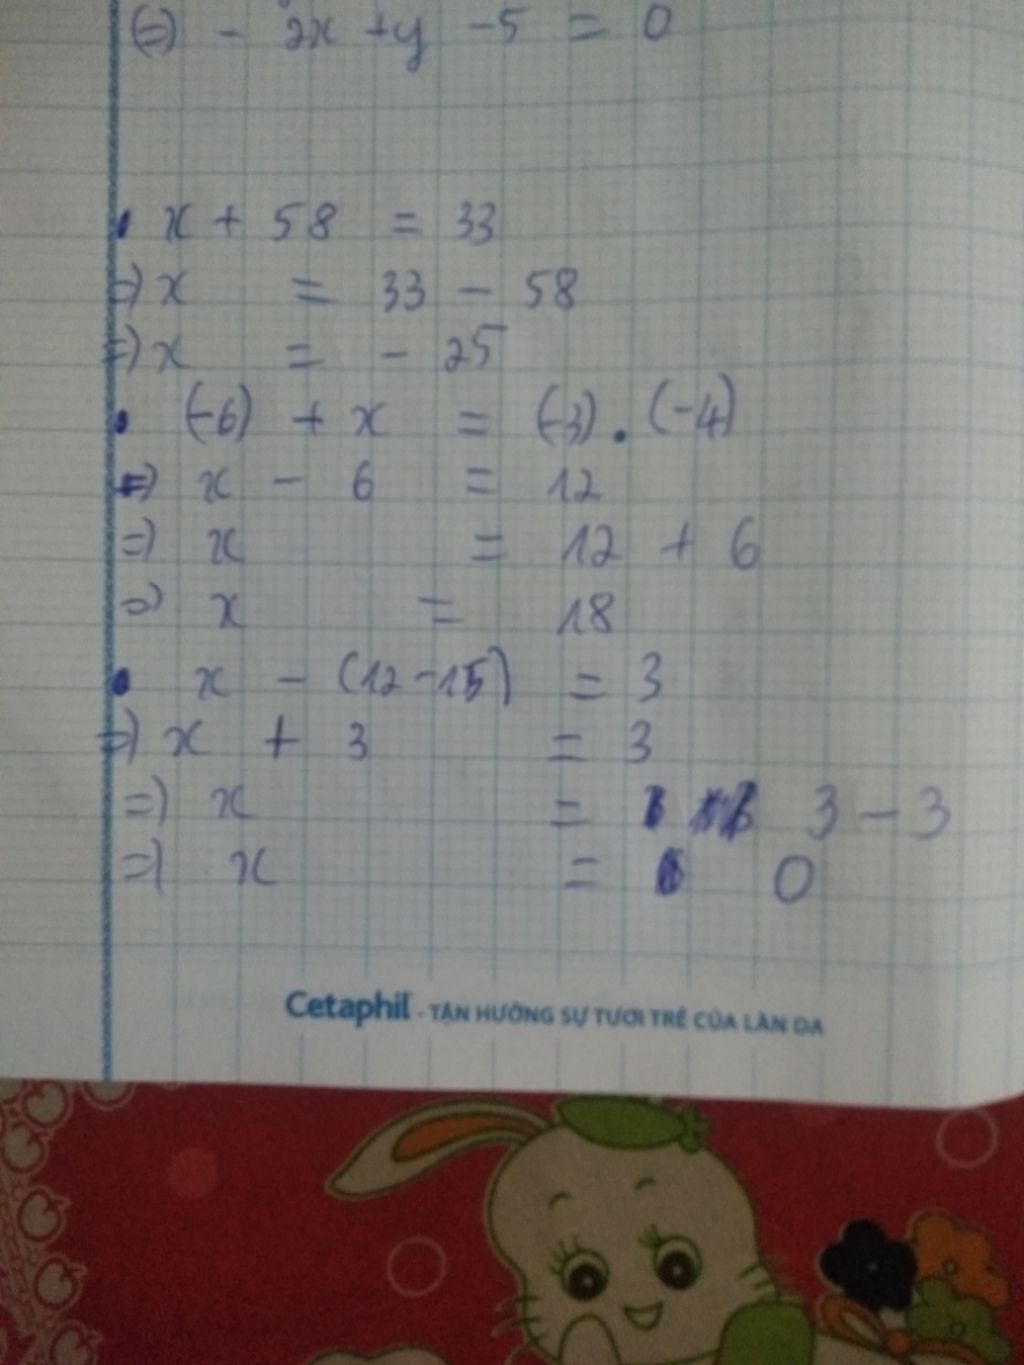 (=) - 2x + y - 5 = 0
• x + 58 = 33
=) x = 33 - 58
=) x = - 25
• (-6) + x = (-3) . (-4)
=) x - 6 = 12
=) x = 12 + 6
=) x = 18
• x - (12 - 15) = 3
=) x + 3 = 3
=) x = 3 - 3
=) x = 0
Cetaphil - TẬN HƯỞNG SỰ TƯƠI TRẺ CỦA LÀN DA